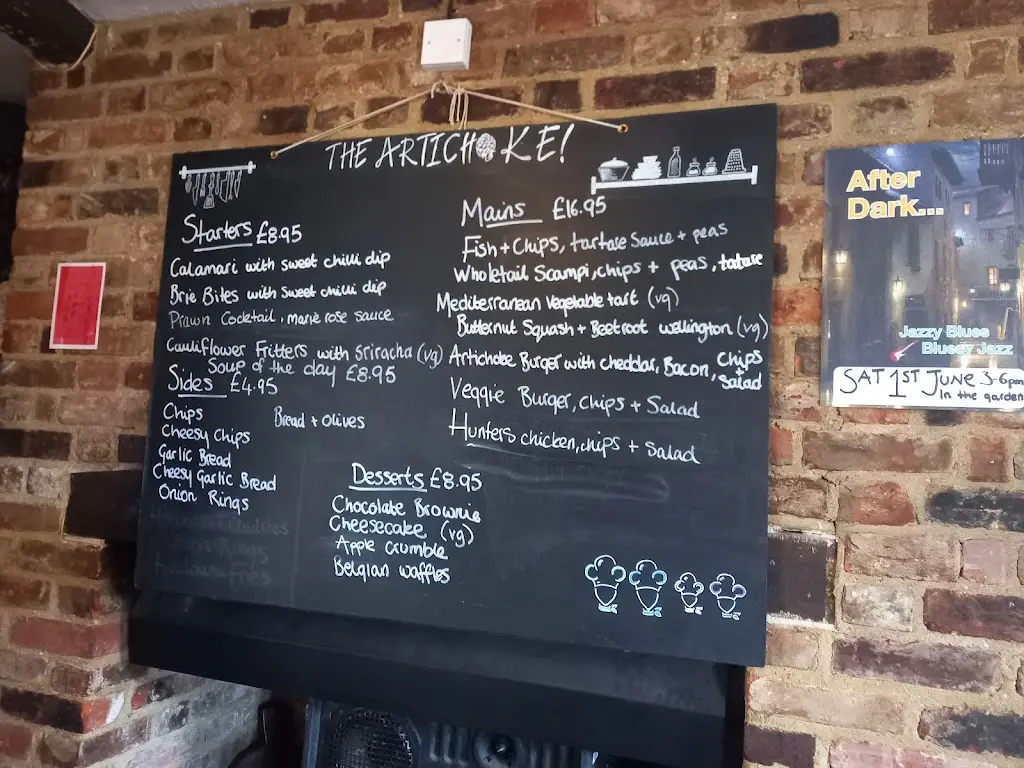 THE ARTICHOKE!
Starters £8.95
Calamari with sweet chilli dip
Brie Bites with sweet chilli dip
Prawn Cocktail, marie rose sauce
Cauliflower Fritters with Sriracha (vg)
Soup of the day £8.95
Sides £4.95
Chips
Cheesy Chips
Garlic Bread
Cheesy Garlic Bread
Onion Rings
Bread + olives
Mains £16.95
Fish + Chips, tartare sauce + peas
Wholetail Scampi, chips + peas, tartare
Mediterranean Vegetable tart (vg)
Butternut Squash + Beetroot wellington (vg)
Artichoke Burger with cheddar, Bacon, Chips
+
Salad
Veggie Burger, chips + Salad
Hunters chicken, chips + Salad
Desserts £8.95
Chocolate Brownie
Cheesecake (vg)
Apple crumble
Belgian waffles
After
Dark...
Jazzy Blues
Bluesy Jazz
SAT 1ST JUNE 3-6pm
In the garden